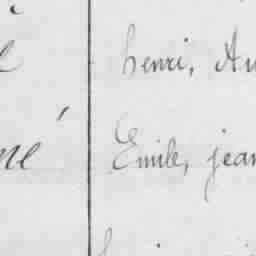 henri, Au
né
Emile, jean